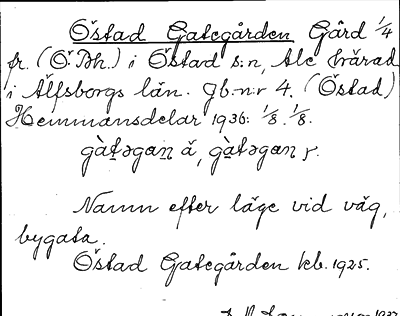 Östad Gategården Gård 1/4
fr. (Ö. Bh.) i Östad s:n, Ale härad
i Älfsborgs län. Jb.n:r 4. (Östad)
Hemmansdelar 1936: 1/8. 1/8.
gàt̯əgan̯ ä, gàt̯əgan r.
Namn efter läge vid väg,
bygata.
Östad Gategården kcb. 1925.